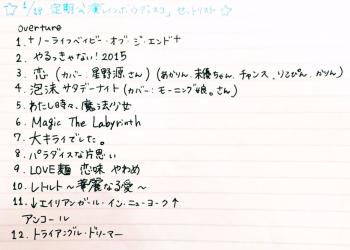 ☆ 1/18 定期公演「レインボウディスコ」セットリスト ☆
overture
1. +ノーライフベイビー・オブ・ジ・エンド+
2. やるっきゃない!2015
3. 恋 (カバー:星野源さん)(あかりん、末優ちゃん、チャンス、りこぴん、かりん)
4. 泡沫サタデーナイト(カバー:モーニング娘。さん)
5. わたし時々、魔法少女
6. Magic The Labyrinth
7. 大キライでした。
8. パラダイスな片思い
9. LOVE麺 恋味 やわめ
10. レトルト〜華麗なる愛〜
11. ↓エイリアンガール・イン・ニューヨーク↑
アンコール
12. トライアングル・ドリーマー